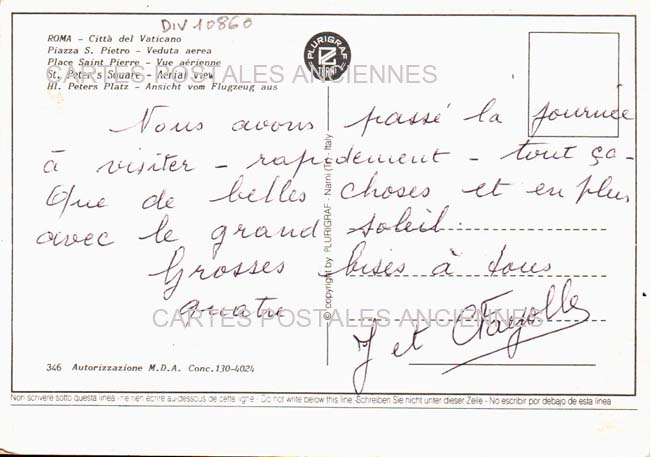 DIV 10860
ROMA - Città del Vaticano
Piazza S. Pietro - Veduta aerea
Place Saint Pierre - Vue aérienne
St. Peter's Square - Aerial view
Hl. Peters Platz - Ansicht vom Flugzeug aus
PLURIGRAF
TRNI
CARTES POSTALES ANCIENNES
Nous avons passé la journée
à visiter - rapidement - tout ça.
Que de belles choses et en plus
avec le grand soleil.
Grosses bises à tous
quatre
J et Fayolle
© copyright by PLURIGRAF - Narni (Tr) - Italy
CARTES POSTALES ANCIENNES
346 Autorizzazione M.D.A. Conc.130-4024
Non scrivere sotto questa linea - ne rien écrire au-dessous de cette ligne - Do not write below this line - Schreiben Sie nicht unter dieser Zeile - No escribir por debajo de esta linea